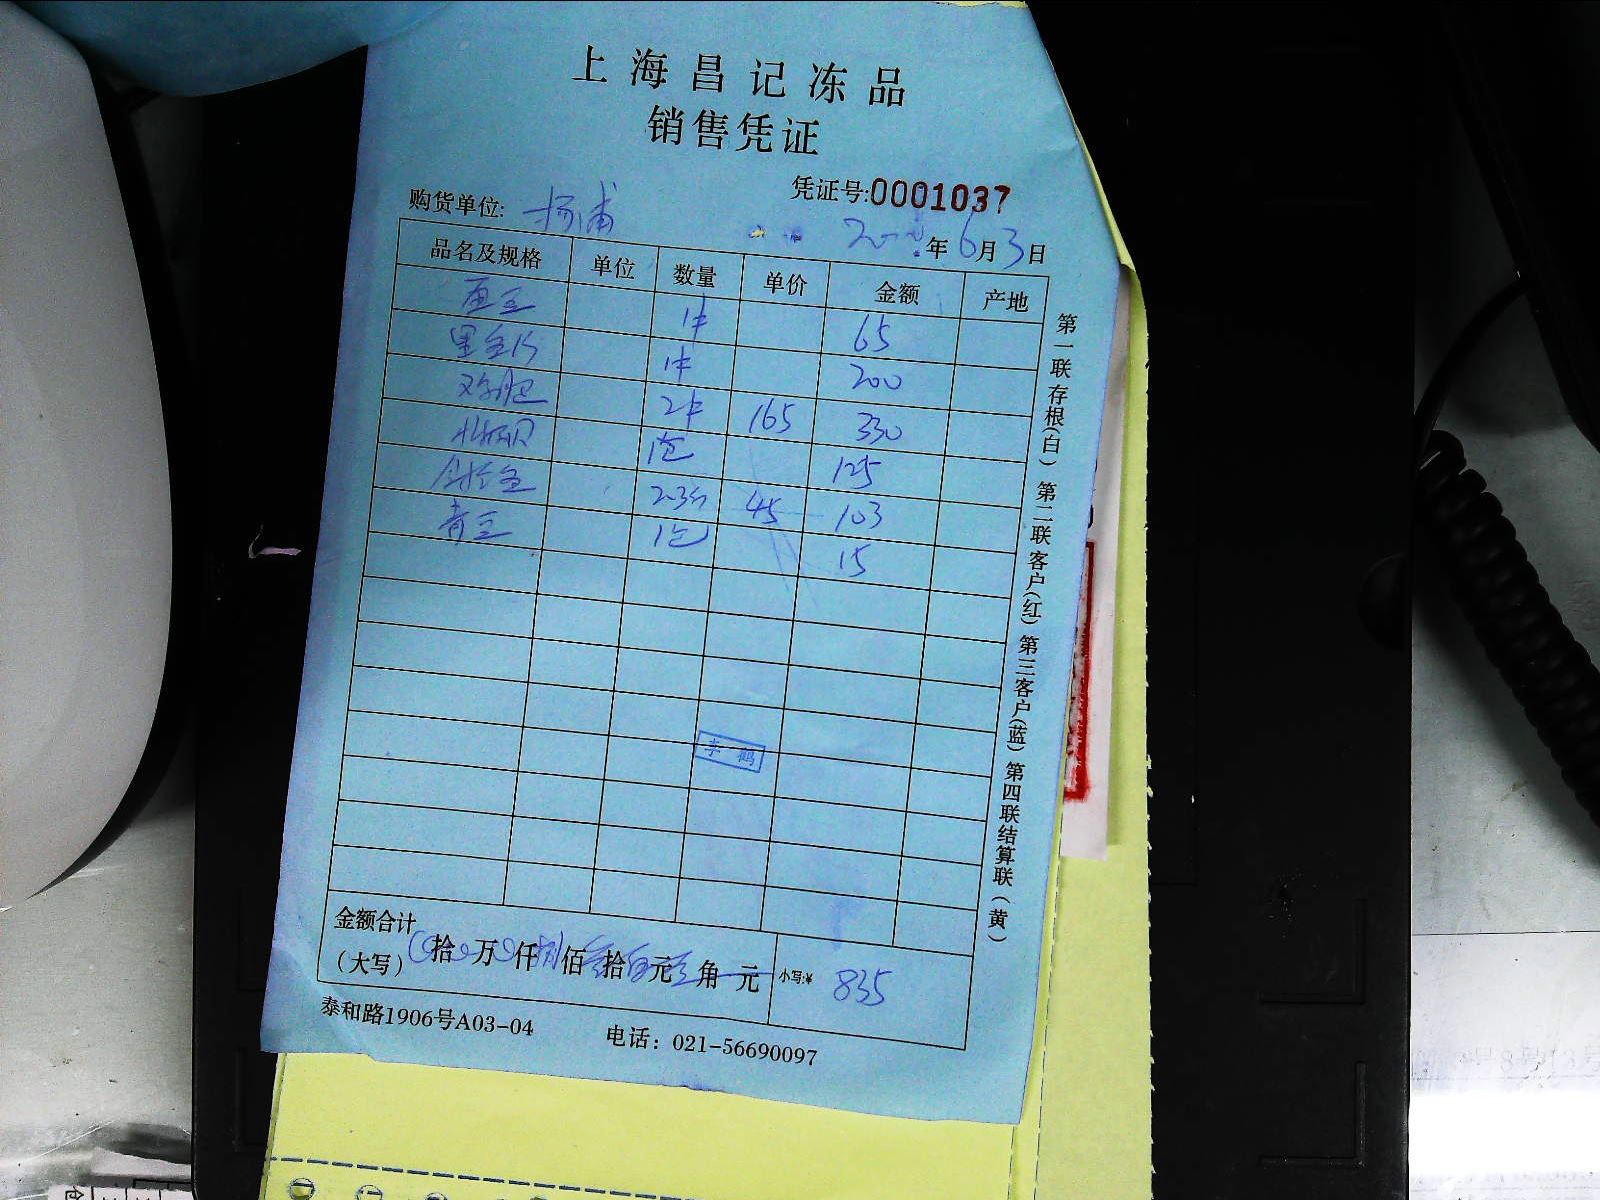 上海昌记冻品
销售凭证
凭证号:0001037
购货单位: 杨浦
年6月3日
品名及规格 单位 数量 单价 金额 产地
1件 65
1件 200
2件 165 330
1包 125
2.3斤 45 103
青豆 1包 15
李 鹤
金额合计
(大写) 拾 万 仟 捌 佰 叁 拾 伍 元 角 元 小写:¥ 835
泰和路1906号A03-04 电话：021-56690097
第一联存根(白) 第二联客户(红) 第三客户(蓝) 第四联结算联(黄)